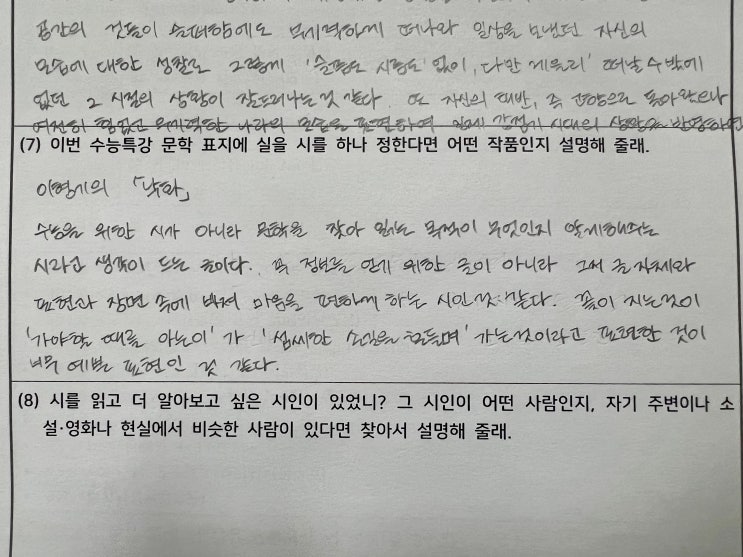 공간의 것들이 슬퍼함에도 무기력하게 떠나와 일상을 보냈던 자신의
모습에 대한 성찰로 그렇게 '슬픔도 시름도 없이, 다만 게을리' 떠날 수밖에
없던 그 시절의 상황이 잘 드러나는 것 같다. 또 자신의 태반, 즉 고향으로 돌아왔으나
여전히 힘없고 무기력한 나라의 모습을 표현하여 일제 강점기 시대의 상황을 반영하면
(7) 이번 수능특강 문학 표지에 실을 시를 하나 정한다면 어떤 작품인지 설명해 줄래.
이형기의 「낙화」
수능을 위한 시가 아니라 문학을 찾아 읽는 목적이 무엇인지 알게해주는
시라고 생각이 드는 글이다. 꼭 정보를 얻기 위한 글이 아니라 그저 글 자체와
표현과 장면 속에 빠져 마음을 편하게 하는 시인 것 같다. 꽃이 지는것이
'가야할 때를 아는이'가 '섬세한 손길을 흔들며' 가는것이라고 표현한 것이
너무 예쁜 표현인 것 같다.
(8) 시를 읽고 더 알아보고 싶은 시인이 있었니? 그 시인이 어떤 사람인지, 자기 주변이나 소
설·영화나 현실에서 비슷한 사람이 있다면 찾아서 설명해 줄래.